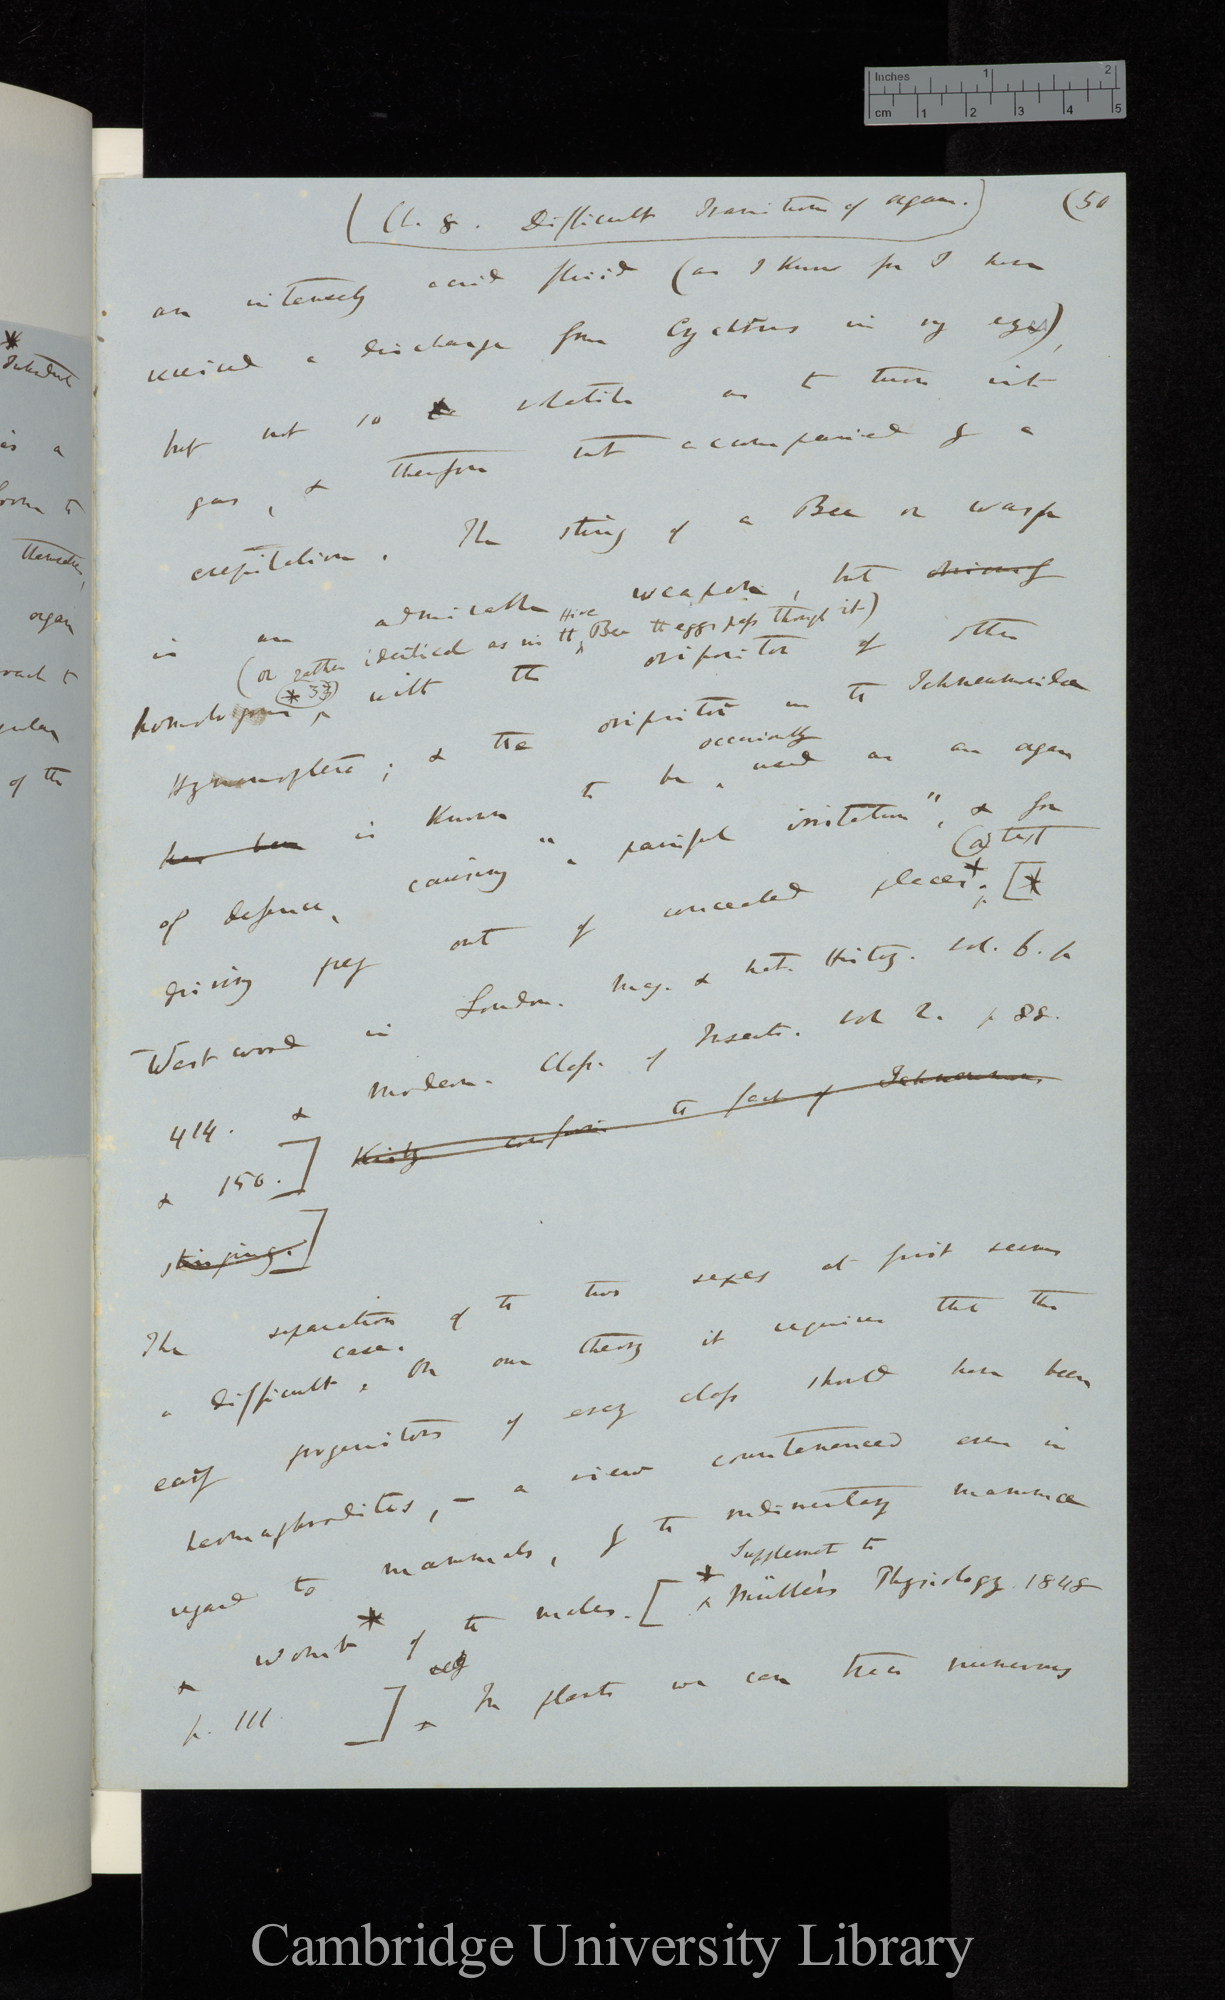 Inches 1 2
cm 1 2 3 4 5
(Ch. 8. Difficult Transition of organ.) (50
an intensely acrid fluid (as I know for I have
received a discharge from Cychrus in my eye),
but not so volatile as to turn into
gas, & therefore not accompanied by a
crepitation. The sting of a Bee or wasp
is an admirable weapon, but
(or rather identical as in the Hive Bee the eggs pass through it)
homologous with the ovipositor of other
Hymenoptera; & the ovipositor in the Ichneumonidæ
has been is known to be occasionally used as an organ
of defence, causing "a painful irritation", & for
(a) text
driving prey out of concealed places*; [*
Westwood in Loudon. Mag. & Nat. History. vol. 6. p
414. & Modern. Class. of Insects. vol 2. p 88.
& 150.] Kirby confirms the fact of Ichneumons
stinging.]
The separation of the two sexes at first seems
a difficult case. On our theory it requires that the
early progenitors of every class should have been
hermaphrodites, — a view countenanced even in
regard to mammals, by the rudimentary mammæ
& womb* of the males. [* Supplement to Müller's Physiology. 1848
p. 111.] In plants we can trace numerous
*
is a
from to
themselves,
organ
of the
Cambridge University Library